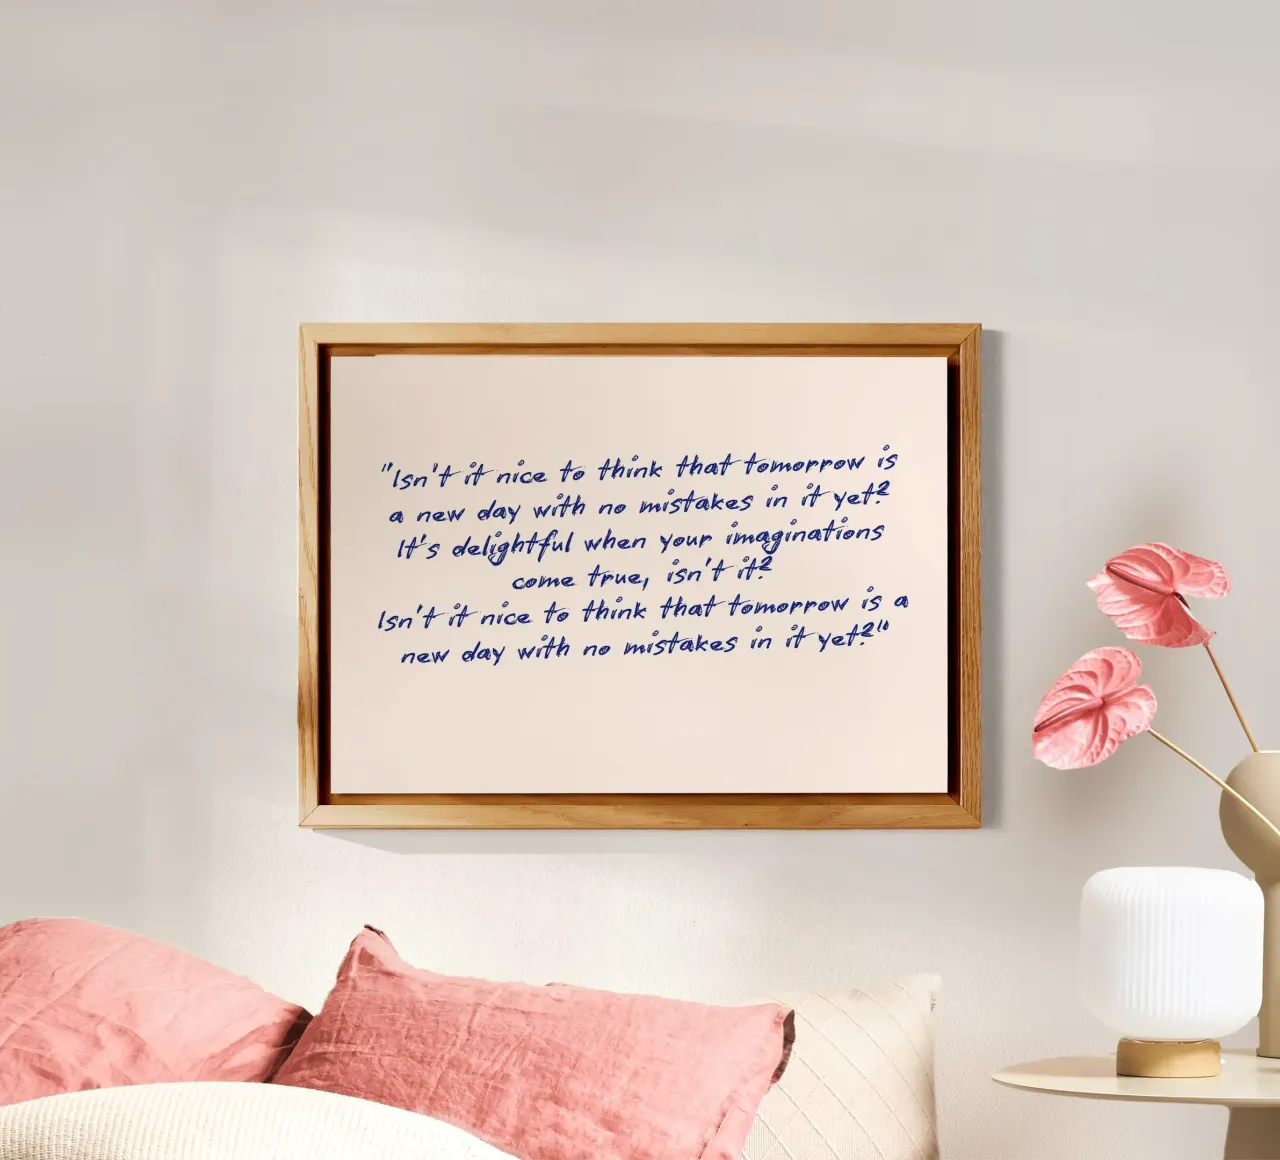 "Isn't it nice to think that tomorrow is
a new day with no mistakes in it yet?
It's delightful when your imaginations
come true, isn't it?
Isn't it nice to think that tomorrow is a
new day with no mistakes in it yet?"